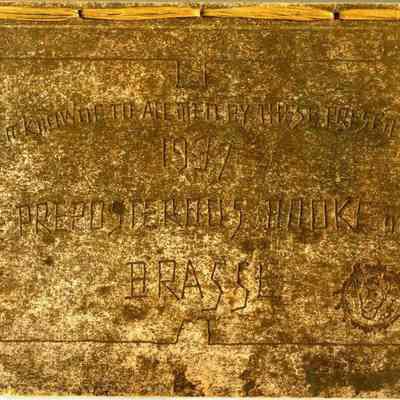 IT KNOWNE TO ALL MEN BY THESE PRESEN
1937
PREPOSTEROUS BOOKE
BRASSE